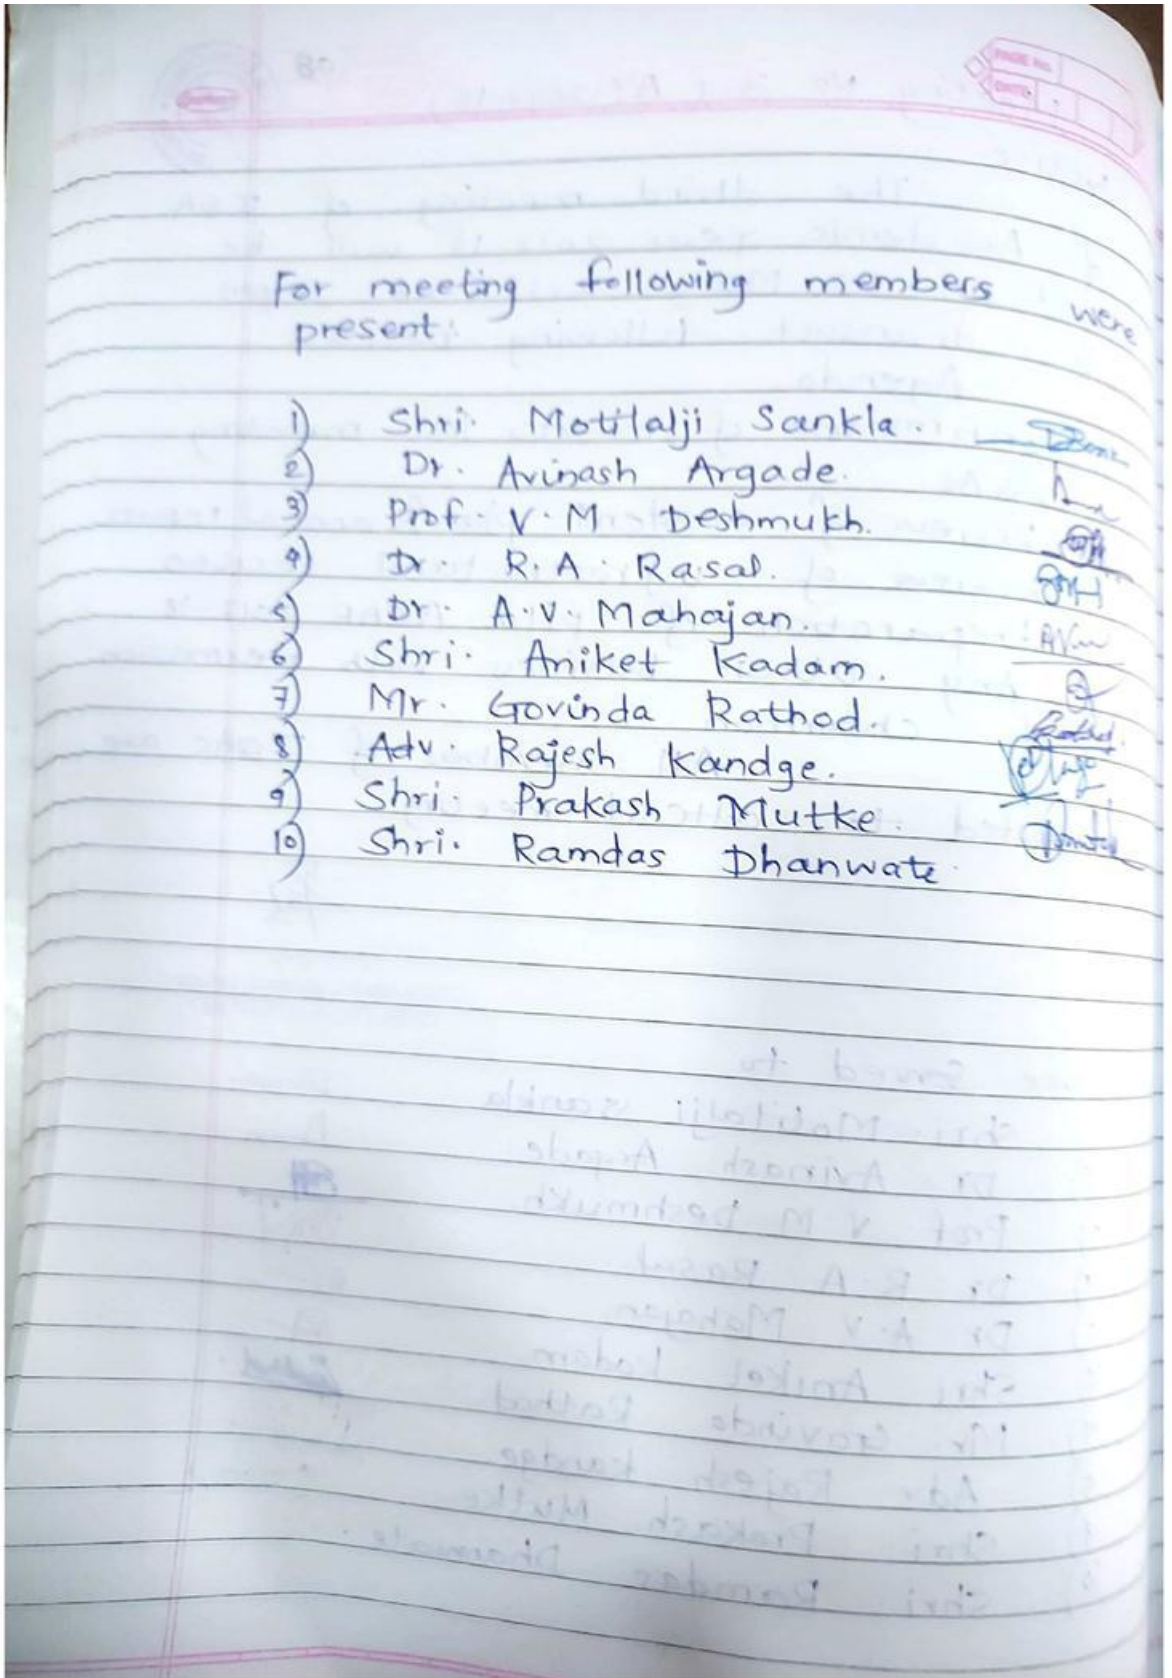 PAGE No.
DATE
For meeting following members were
present.
1) Shri. Motilalji Sankla.
2) Dr. Avinash Argade.
3) Prof. V. M Deshmukh.
4) Dr. R. A. Rasal.
5) Dr. A.V. Mahajan.
6) Shri. Aniket Kadam.
7) Mr. Govinda Rathod.
8) Adv. Rajesh Kandge.
9) Shri. Prakash Mutke.
10) Shri. Ramdas Dhanwate.